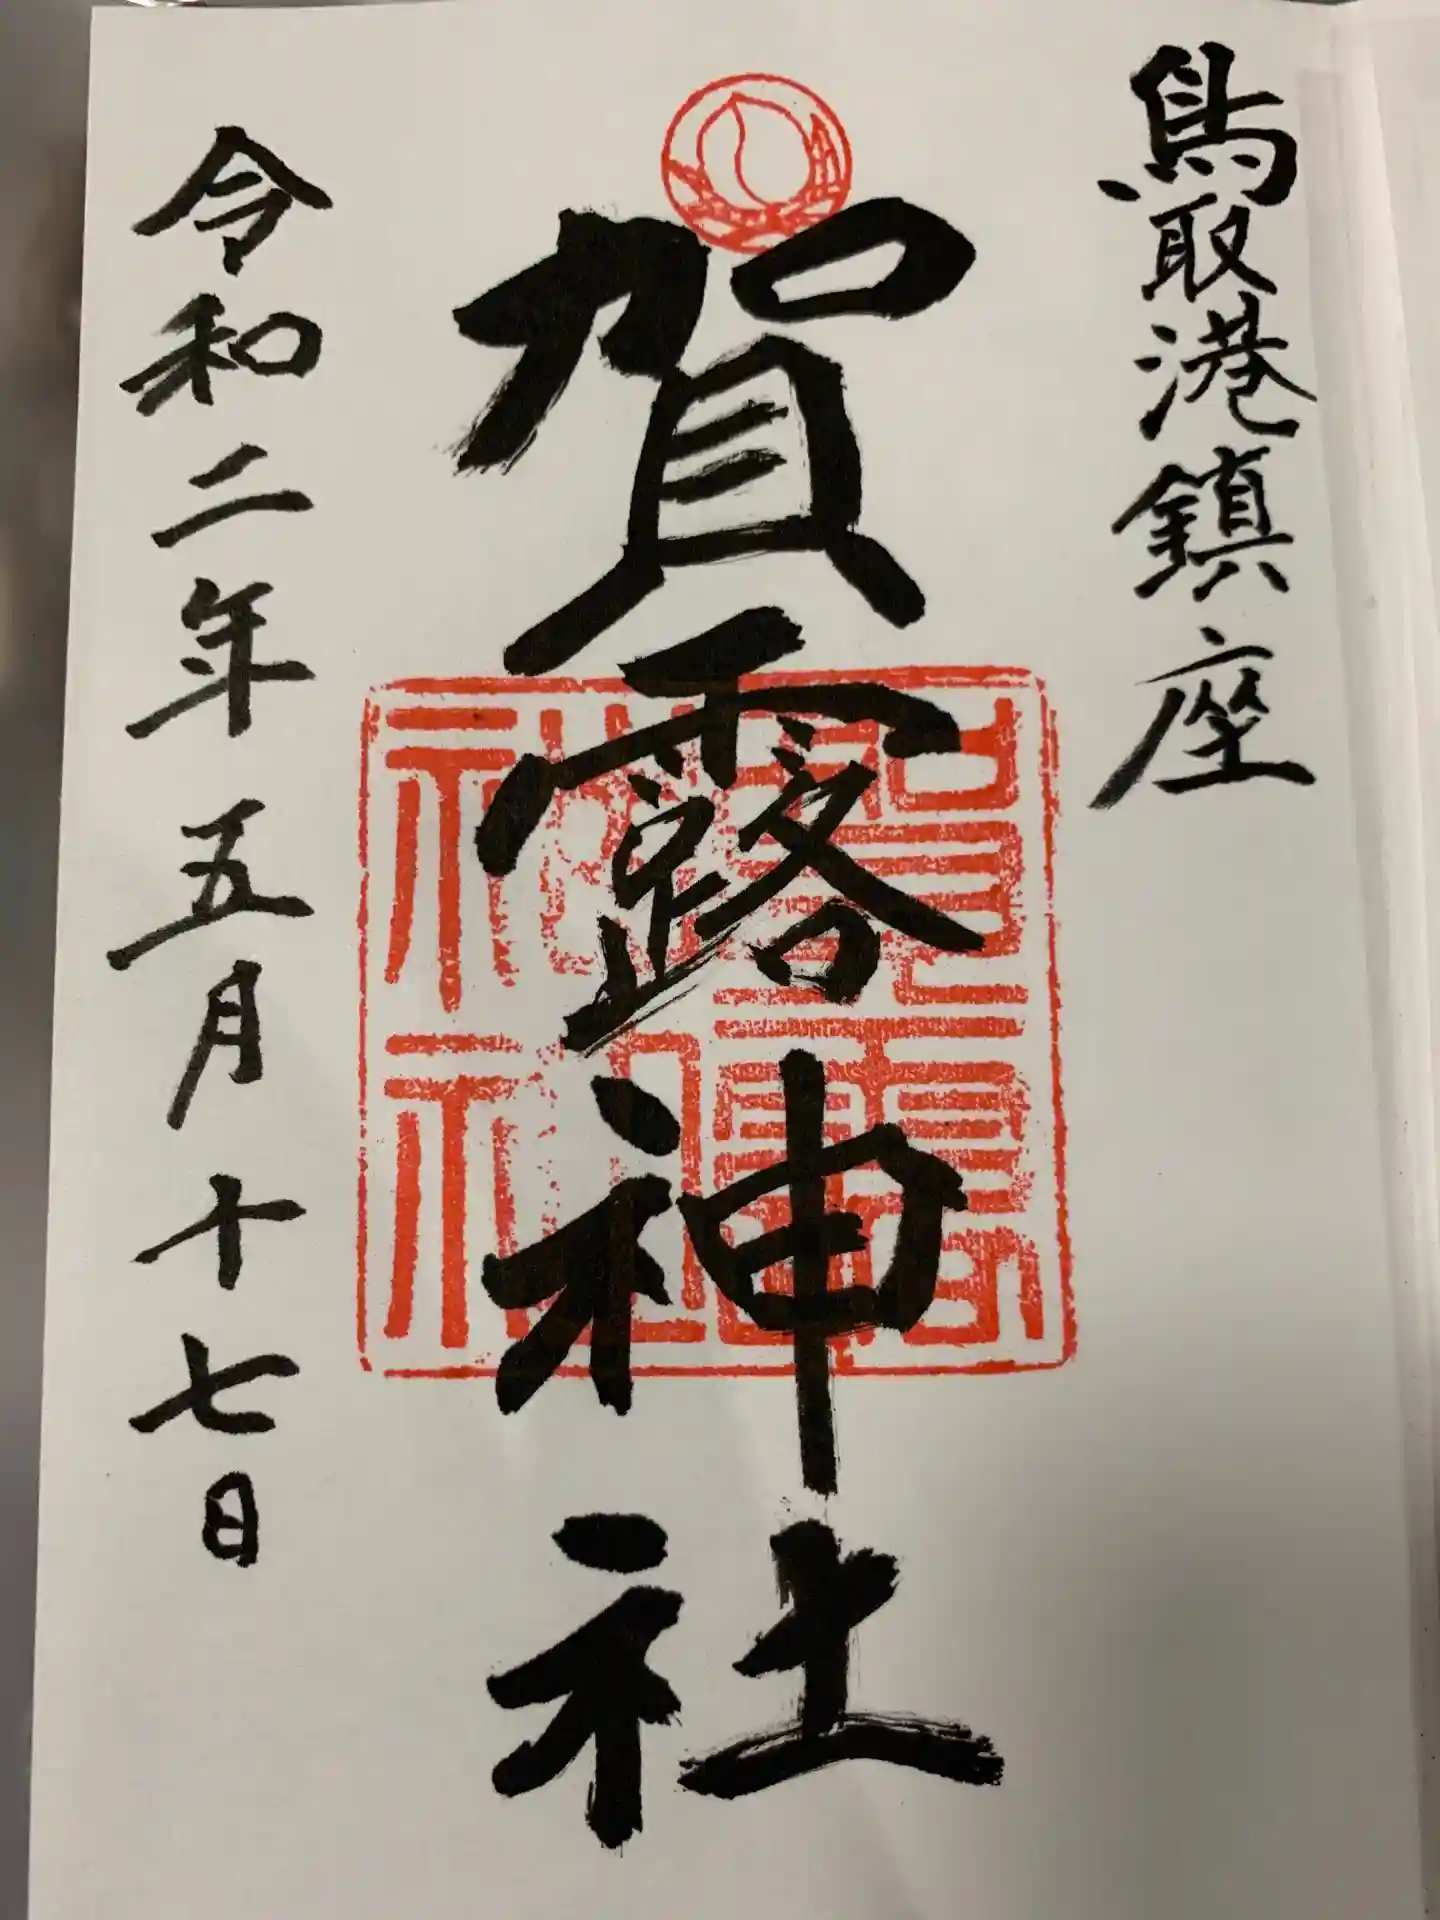 鳥取港鎮座
賀露神社
賀露神社
令和二年五月十七日